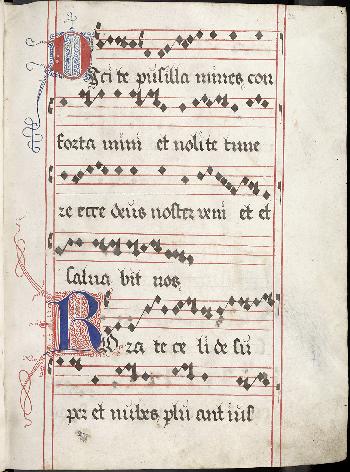 Dici te pusilla nimes con
forta mini et nolite time
re ecce deus noster veni et et
salua bit nos
RO ra te ce li de su
per et nubes plu ant ius